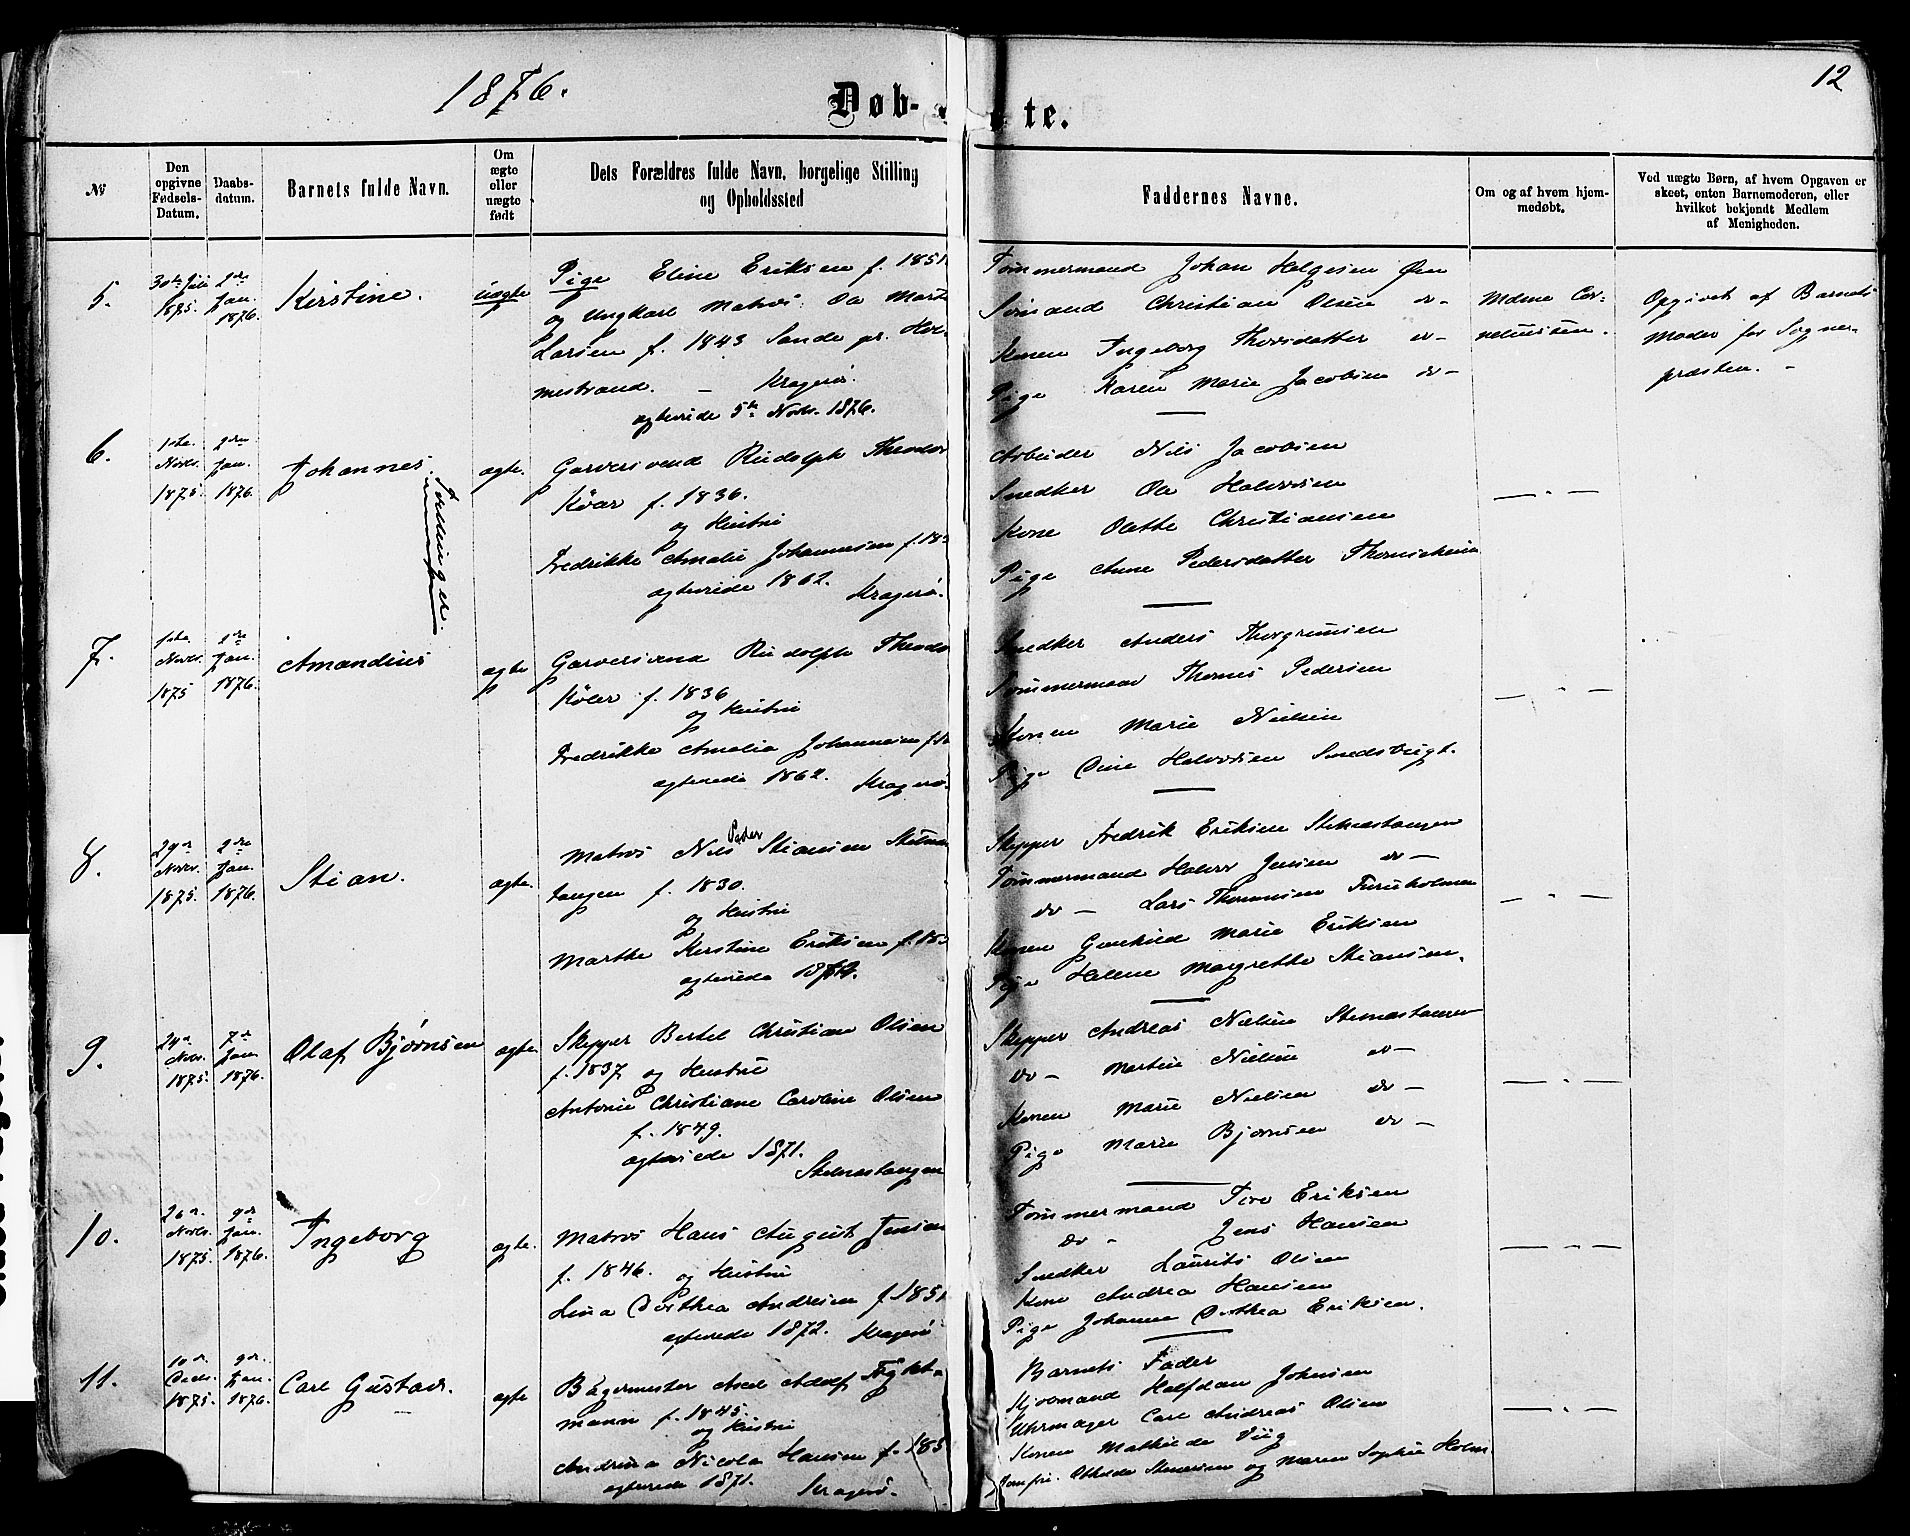 1876.
12
Døb-
te.
№
Den opgivne Fødsels-Datum.
Daabs-datum.
Barnets fulde Navn.
Om ægte eller uægte født
Dets Forældres fulde Navn, borgelige Stilling og Opholdssted
Faddernes Navne.
Om og af hvem hjem-medøbt.
Ved uægte Børn, af hvem Opgaven er skeet, enten Barnemoderen, eller hvilket bekjendt Medlem af Menigheden.
5.
30te Juli 1875.
2den Jan. 1876.
Kirstine.
uægte
Pige Eline Eriksen f. 1851
og Ungkarl Matros Ola Mart
Larsen f. 1843 Sande pr. Hol-
mestrand. – Kragerø.
ægteviede 5te Novbr. 1876.
Tømmermand Johan Helgesen Øen
Sømand Christian Olsen do–
Konen Ingeborg Thorsdatter do–
Pige Karen Marie Jacobsen do–
Mdme Cor-
neliussen.
Opgivet af Barnets
Moder for Sogne-
præsten. –
6.
1ste Novbr. 1875.
2den Jan. 1876.
Johannes
Tvillinger.
ægte.
Garversvend Rudolph Theodor
Köer f. 1836.
og Hustru
Fredrikke Amalie Johannesen f. 183
ægteviede 1862. Kragerø.
Arbeider Nils Jacobsen
Snedker Ole Halvorsen
Kone Olette Christiansen
Pige Anne Pedersdatter
— „ —
7.
1ste Novbr. 1875
2den Jan. 1876.
Amandius
ægte
Garversvend Rudolph Theodo
Köler f. 1836
og Hustru
Fredrikke Amalia Johannesen f. 18
ægteviede 1862. Kragerø.
Snedker Anders Thorgrimsen
Tømmermand Thomes Pedersen
Konen Marie Nielsen
Pige Oline Halvorsen Smedsbugt.
— „ —
8.
29de Novbr. 1875.
2den Jan. 1876.
Stian.
ægte.
Matros Nils Peder Stiansen Stilnæs
tangen f. 1830.
og Hustru
Marthe Kirstine Eriksen f. 183
ægteviede
Skipper Fredrik Eriksen Stilnæstangen
Tømmermand Halvor Jensen do –
do – Lars Thommesen Furuholmen
Konen Gunhild Marie Eriksen
Pige Helene Margrethe Stiansen.
— „ —
9.
24de Novbr. 1875.
7de Jan. 1876.
Olaf Bjørnsen
ægte.
Skipper Bertel Christian Olsen
f. 1837 og Hustru
Antonie Christiane Caroline Olsen
f. 1849.
ægteviede 1871.
Stilnæstangen
Skipper Andreas Nielsen Stilnæstangen
do – Martin Nielsen do –
Konen Marie Nielsen do –
Pige Marie Bjørnsen do –
— „ —
10.
26de Novbr. 1875.
9de Jan. 1876.
Ingeborg
ægte.
Matros Hans August Jensen
f. 1846. og Hustru
Lina Dorthea Andresen f. 1851
ægteviede 1872. Kragerø
Tømmermand Tore Eriksen
do „ Jens Hansen
Snedker Laurits Olsen
Kone Andrea Hansen
Pige Johanne Dorthea Eriksen.
— „ —
11.
10de Decbr. 1875.
9de Jan. 1876.
Carl Gustav.
ægte
Bagermester Axel Adolf
mann f. 1845.
og Hustru
Andrina Nicola Hansen f. 185
ægteviede 1871. Kragerø.
Barnets Fader
Styrmand Halfdan Johnsen
Uhrmager Carl Andreas Olsen
Konen Mathilde Viig
Jomfru. Othilde Stenersen og Maren Sophie Holm
— „ —